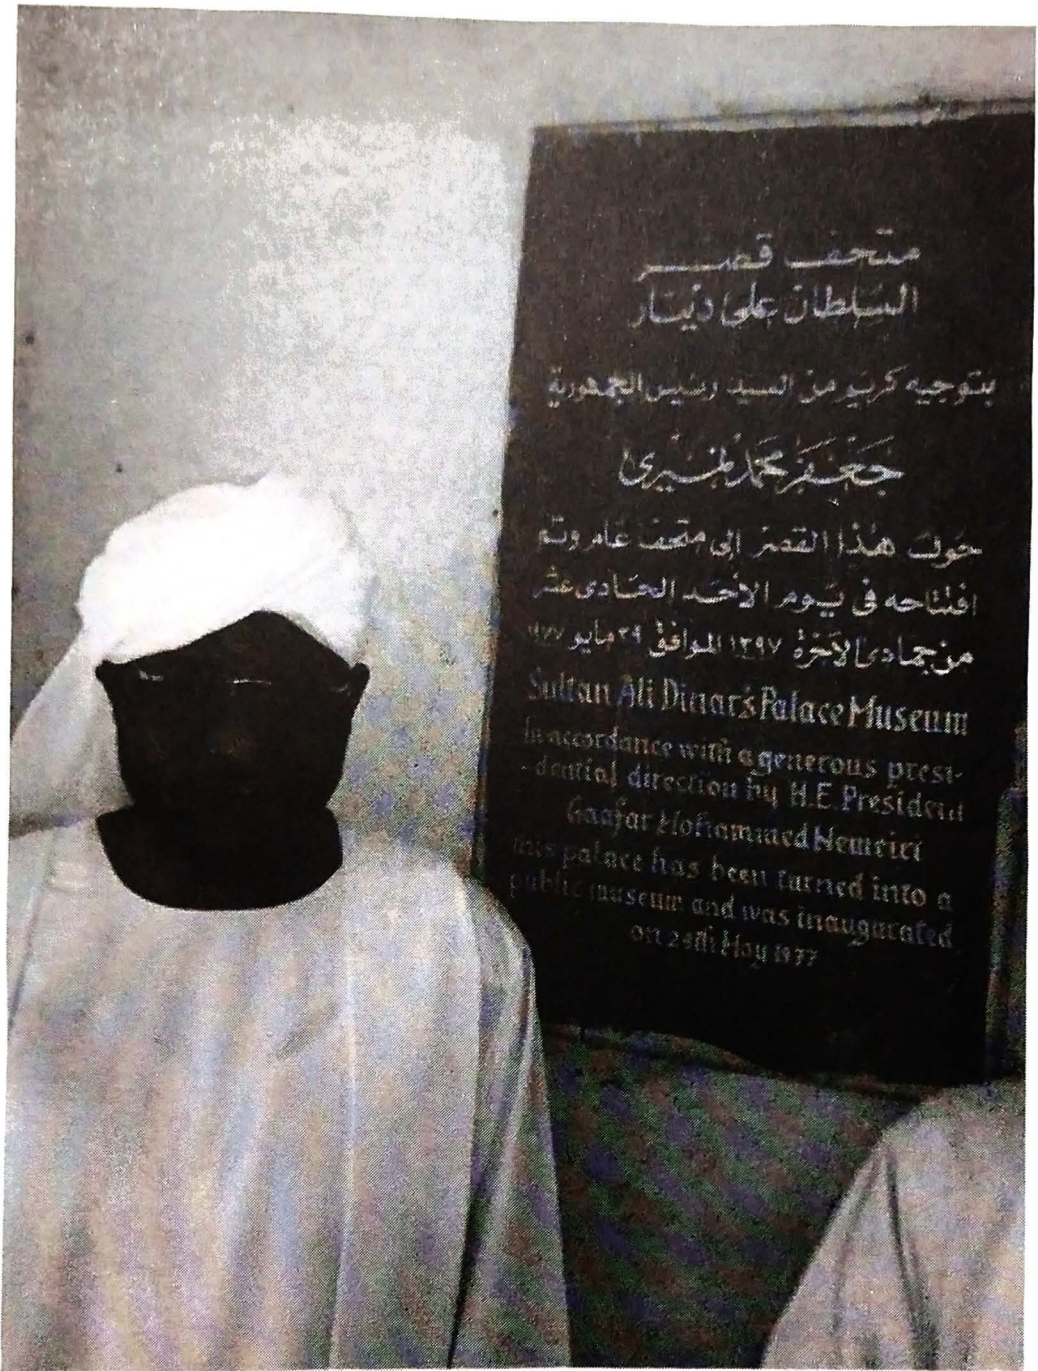 متحف قصر
السلطان على دينار
بتوجيه كريم من السيد رئيس الجمهورية
جعفر محمد نميرى
حول هذا القصر إلى متحف عام وتم
افتتاحه فى يوم الأحد الحادى عشر
من جمادى الآخرة ١٣٩٧ الموافق ٢٩ مايو ١٩٧٧
Sultan Ali Dinar's Palace Museum
In accordance with a generous presi-
-dential direction by H.E. President
Gaafar Mohammed Nemeiri
this palace has been turned into a
public museum and was inaugurated
on 29th May 1977